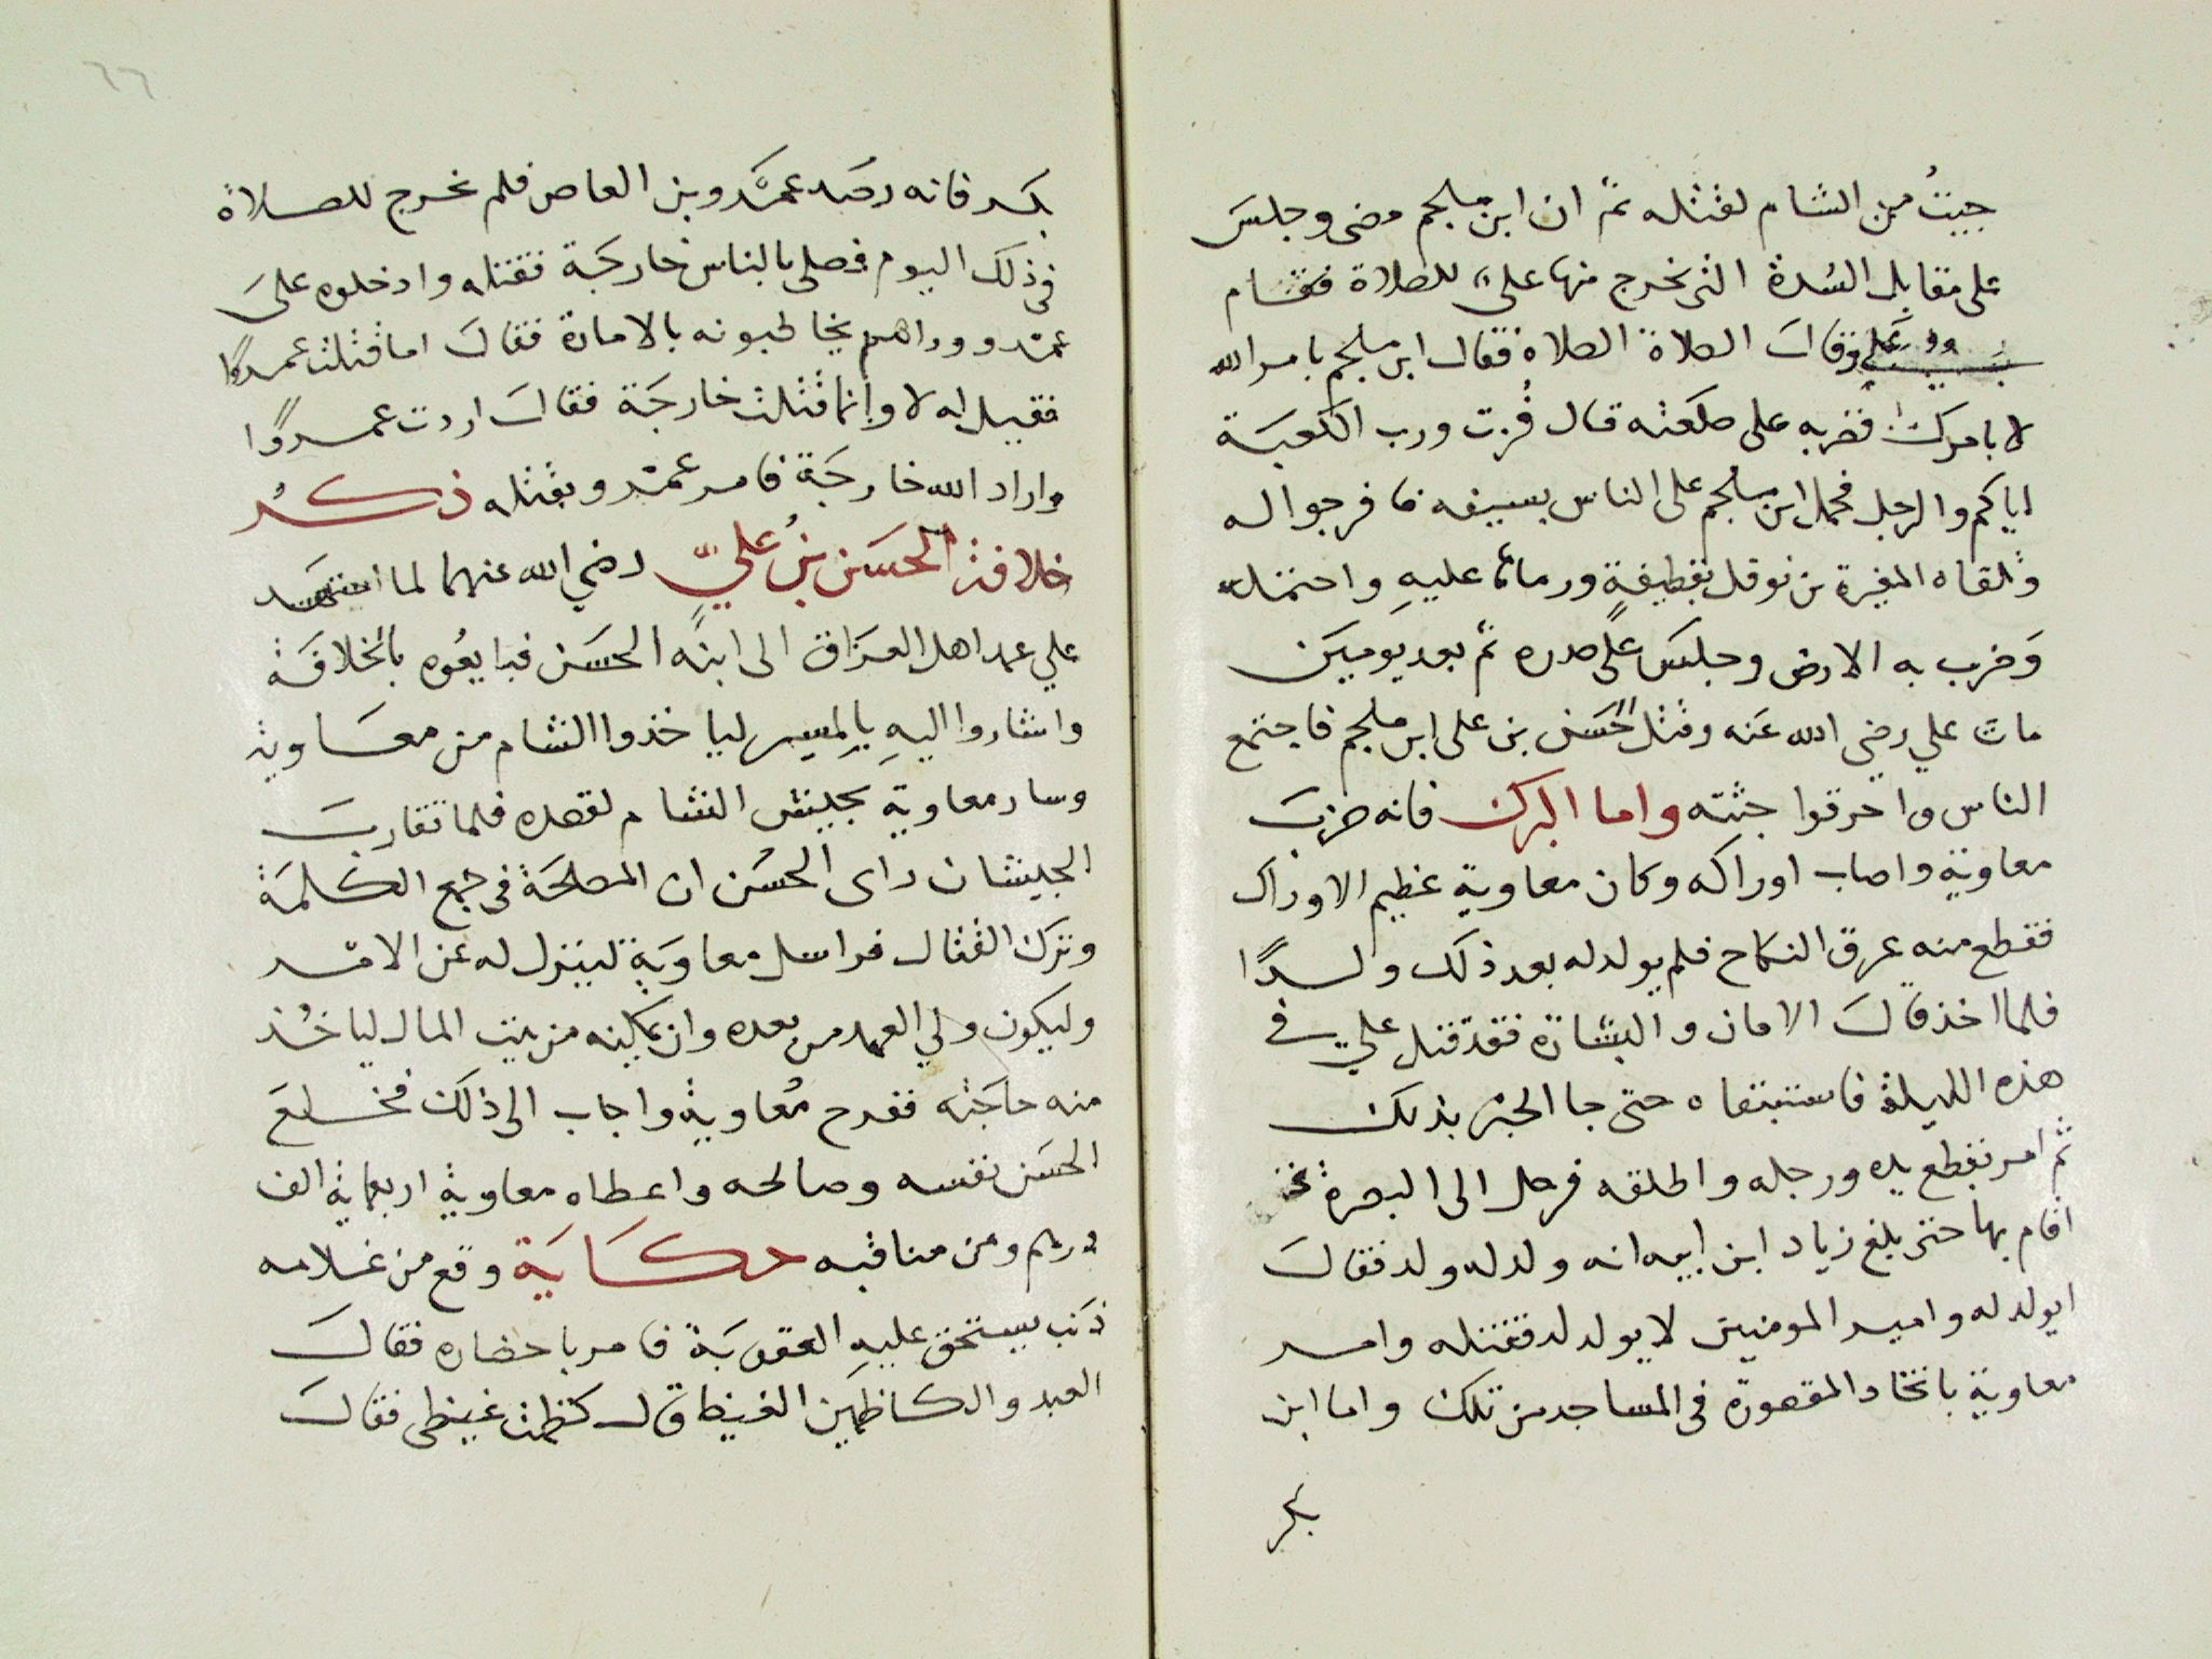 جيتُ من الشام لقتله ثم ان ابن ملجم مضى وجلسَ
على مقابل السُدة التى يخرج منها علىّ للصلاة فقام
علي وقال الصلاة الصلاة فقال ابن ملجم بامر الله
لا بامرك فضربه على صلعته قال فُزت ورب الكعبَة
اياكم والرجل فحمل ابن ملجم على الناس بسيفه فافرجوا له
وتلقاه المغيرة بن نوفل بقطيفةٍ ورماها عليهِ واحتمله
وَضرب به الارض وجلسَ على صدره ثم بعد يوميَن
مات علي رضي الله عَنه وقتل الحسَن بن على ابن ملجم فاجتمع
الناس واحرقوا جثته واما البرك فانه ضربَ
معاوية واصاب اوراكه وكان معاوية عظيم الاوراك
فقطع منه عرق النكاح فلم يولد له بعد ذلك ولدًا
فلما اخذ قالَ الامان والبشارة فقد قتل علي في
هذه الليلة فاستبقاه حتى جا الخبر بذلك
ثم امر بقطع يده ورجله واطلقه فرحل الى البصرة
اقام بها حتى بلغ زياد ابن ابيه انه ولد له ولد فقالَ
ايولد له وامير المومنين لا يولد له فقتله وامر
معاوية باتخاد المقصورة فى المساجد من تلك واما ابن
بكر
٦٦
بكر فانه رصَد عمَرو بن العاص فلم يخرج للصلاة
فى ذلك اليوم فصلى بالناس خارجَة فقتله وادخلوه علىَ
عمَرو وراهم يخاطبونه بالامارة فقال اما قتلت عمروًا
فقيل له لا وانما قتلت خارجَة فقالَ اردت عمروًا
واراد الله خارجَة فامر عمَرو بقتله ذكرُ
خلافة الحسَن بنُ عليّ رضي الله عنهما لما استشهد
علي عمد اهل العرَاق الى ابنه الحسَن فبايعُوه بالخلافَة
واشاروا اليهِ بالمسير لياخذوا الشام من معاوية
وسار معاوية بجيش الشام لقصده فلما تقاربَ
الجيشان راى الحسَن ان المصلحَة فى جمع الكلمَة
وترك القتال فراسل معاويَة لينزل له عن الامَر
وليكون ولي العهد من بعده وان يمكنه من بيت المال لياخُذ
منه حاجَته ففرح مُعاوية واجاب الى ذلك فخلعَ
الحسَن نفسه وصالحه واعطاه معاوية اربعماية الف
درهم ومن مناقبه حكايَة وقع من غلامه
ذنب يستحق عليهِ العقوبَة فامر باحضاره فقالَ
العبد والكاظمين الغيظ قال كظمت غيظى فقالَ